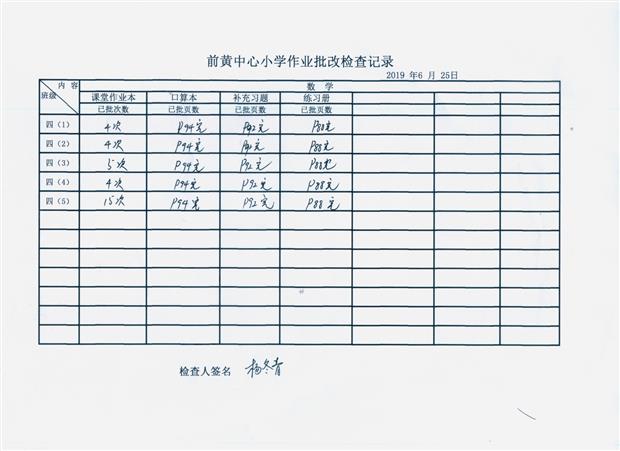 前黄中心小学作业批改检查记录
2019 年6 月 25日
内 容 数 学
班级 课堂作业本 口算本 补充习题 练习册
已批次数 已批页数 已批页数 已批页数
四（1） 4次 P94完 P92完 P88完
四（2） 4次 P94完 P92完 P88完
四（3） 5次 P94完 P92完 P88完
四（4） 4次 P94完 P92完 P88完
四（5） 15次 P94完 P92完 P88完
检查人签名 杨冬青